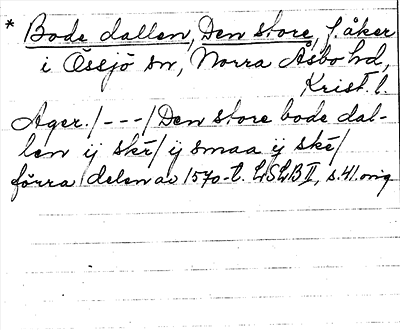 * Bode dallen, Den store, f. åker
i Össjö sn, Norra Åsbo hd,
Krist. l.
Ager. / - - - / Den store bode dal-
len ij ske / ij smaa ij ske /
förra delen av 1570-t. LSLB II, s. 41. orig